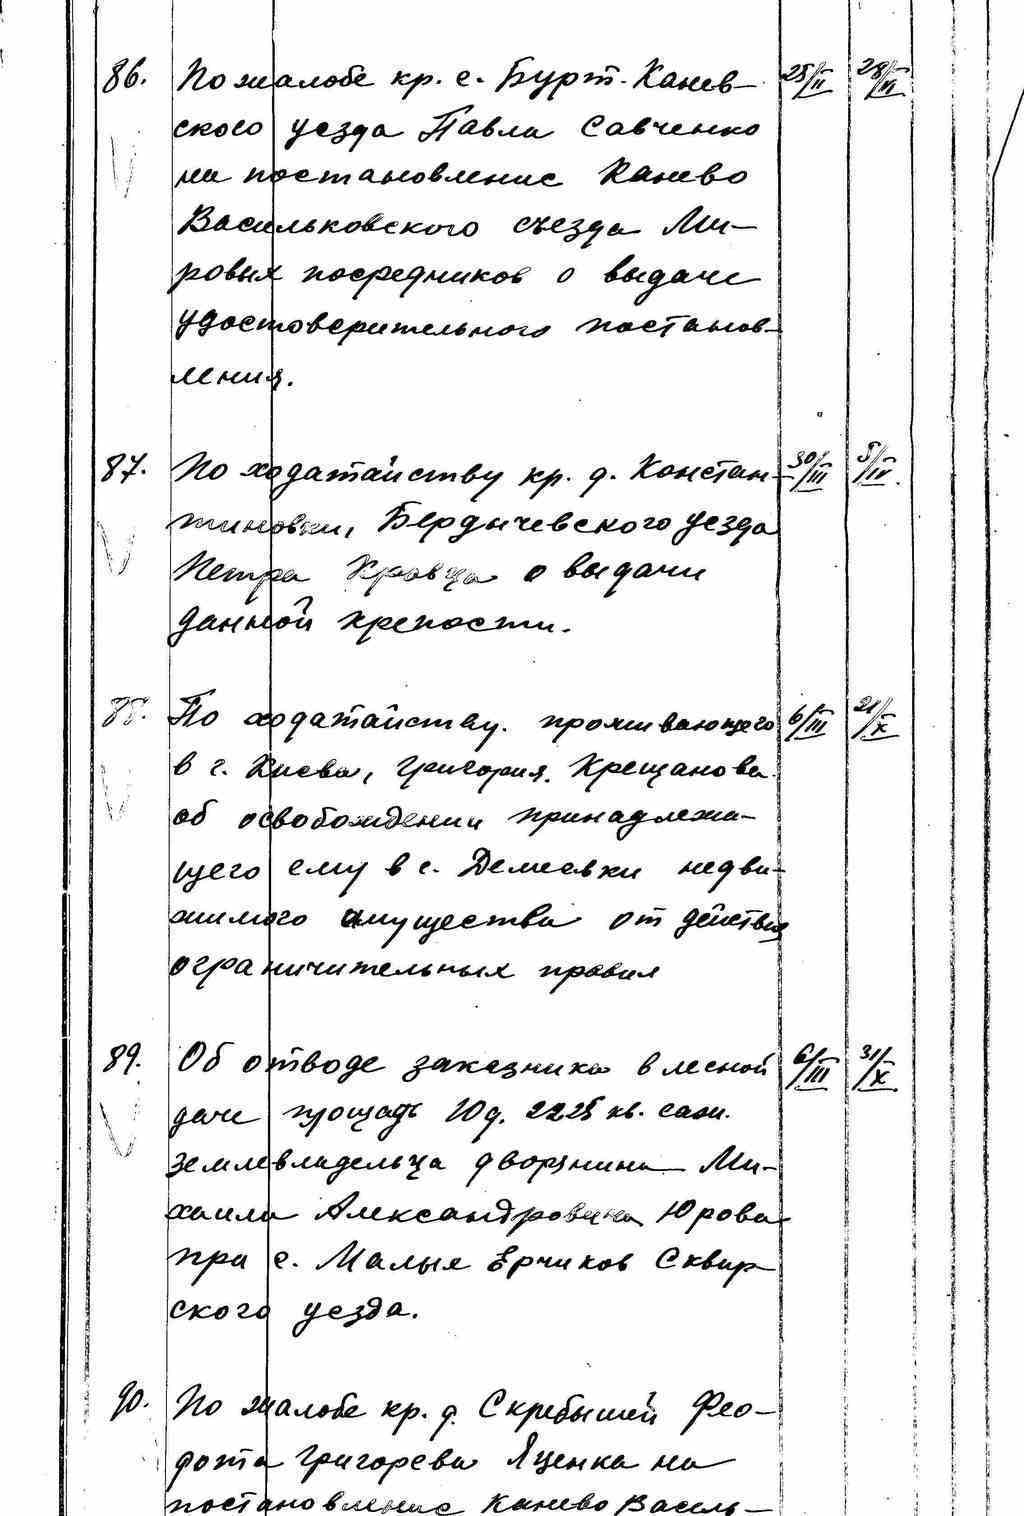 86. По жалобе кр. с. Бурт. Канев- 25/II 28/VI
ского уезда Павла Савченко
на постановление Канево
Васильковского съезда Ми-
ровых посредников о выдаче
удостоверительного постанов-
ления.
87. По ходатайству кр. д. Констан- 30/III 5/IV
тиновки, Бердычевского уезда
Петра Кравца о выдачи
данной крепости.
88. По ходатайству. проживающего 6/III 21/X
в г. Киева, Григория. Крещанова
об освобождении принадлежа-
щего ему в с. Демиевки недви-
жимого имущества от действия
ограничительных правил
89. Об отводе заказника в лесной 6/III 31/X
даче площадь 10 д. 2225 кв. саж.
землевладельца дворянина Ми-
хаила Александровича Юрова
при с. Малых Ерчиков Сквир-
ского уезда.
90. По жалобе кр. д. Скребышей Фео-
дота Григорева Яценка на
постановление Канево Василь-